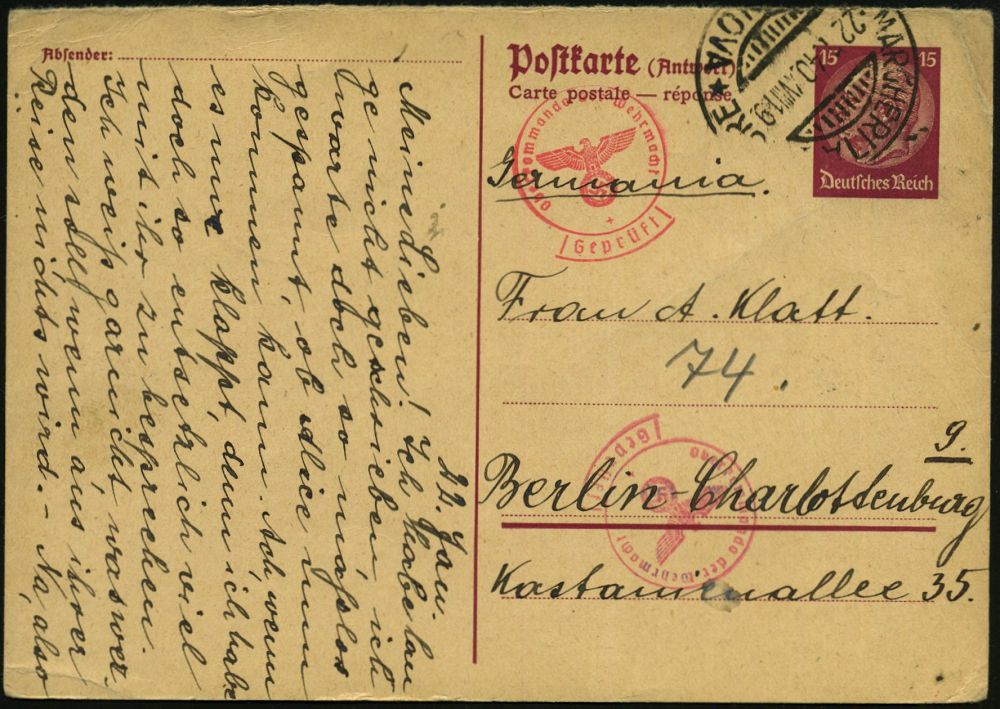 Absender:
Postkarte (Antwort)
Carte postale — réponse
15 15
Deutsches Reich
Oberkommando der Wehrmacht
Geprüft
Germania.
Frau A. Klatt.
74.
9.
Berlin-Charlottenburg
Kastanienallee 35.
Oberkommando der Wehrmacht
Geprüft
22. Jan.
Meine Lieben! Ich habe lan
ge nicht geschrieben ich
warte doch so maßlos
gespannt, ob Alice nun
kommen kann. Ach, wenn
es nur klappt, denn ich habe
doch so entsetzlich viel
mit ihr zu besprechen.
Ich weiß garnicht was wer-
den soll, wenn aus ihrer
Reise nichts wird. - Na, also